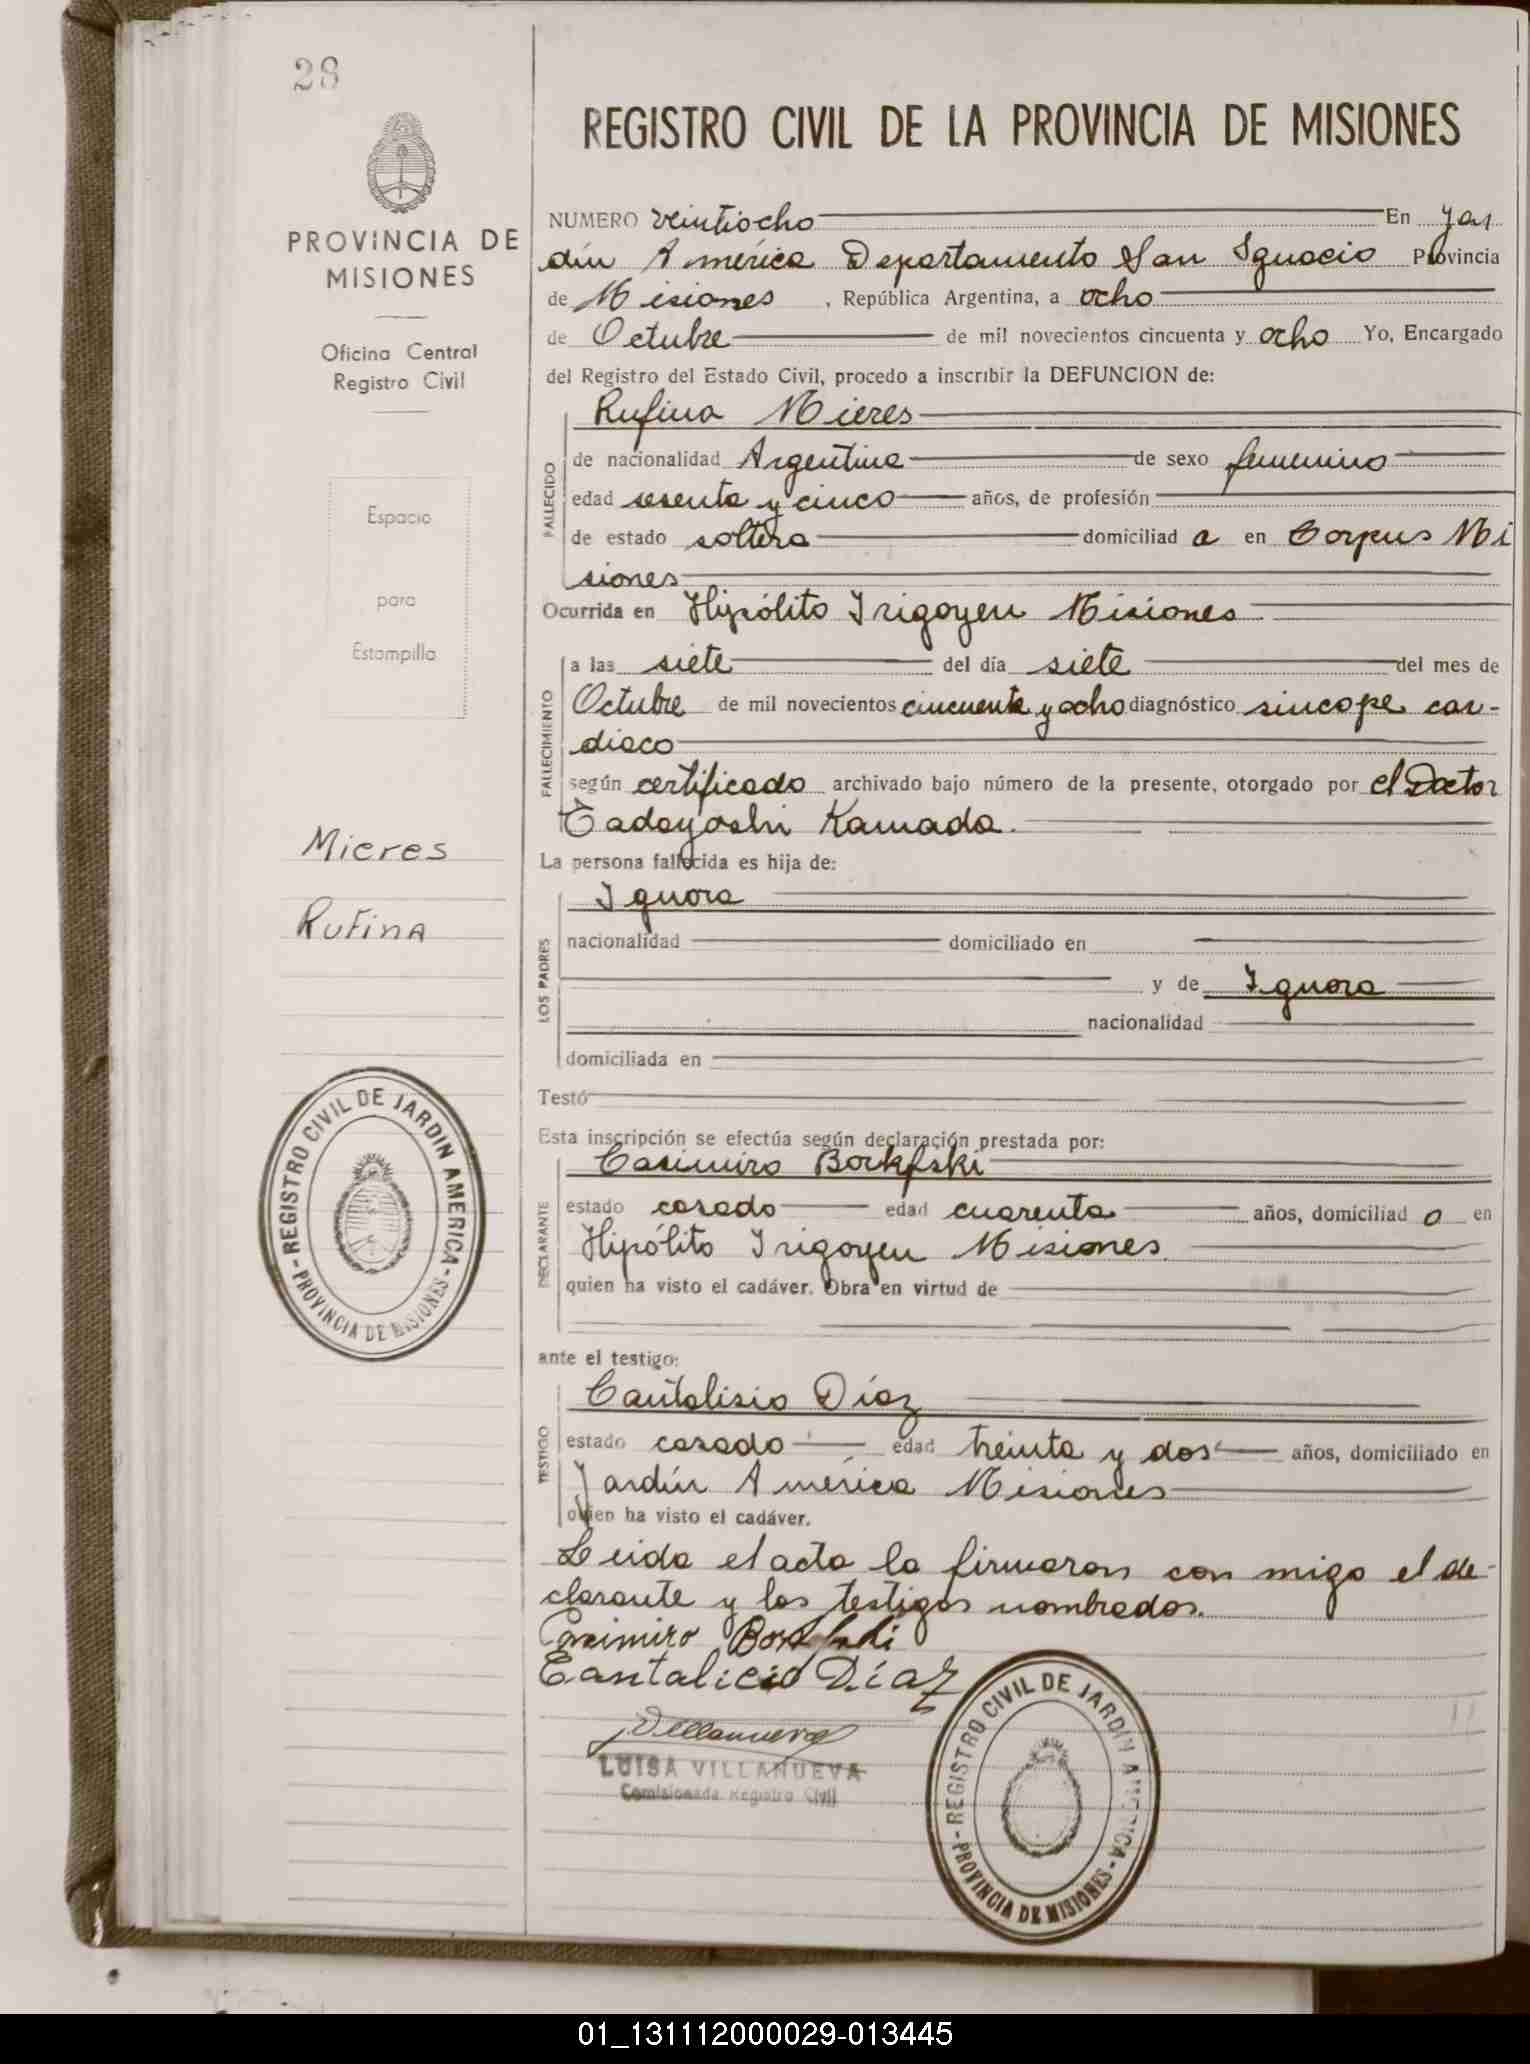 28
PROVINCIA DE
MISIONES
Oficina Central
Registro Civil
Espacio
para
Estampilla
Mieres
Rufina
REGISTRO CIVIL DE JARDIN AMERICA - PROVINCIA DE MISIONES -
REGISTRO CIVIL DE LA PROVINCIA DE MISIONES
NUMERO veintiocho En Jar
dín América Departamento San Ignacio Provincia
de Misiones , República Argentina, a ocho
de Octubre de mil novecientos cincuenta y ocho Yo, Encargado
del Registro del Estado Civil, procedo a inscribir la DEFUNCION de:
Rufina Mieres
FALLECIDO
de nacionalidad Argentina de sexo femenino
edad sesenta y cinco años, de profesión
de estado soltera domiciliad a en Corpus Mi
siones
Ocurrida en Hipólito Irigoyen Misiones
FALLECIMIENTO
a las siete del día siete del mes de
Octubre de mil novecientos cincuenta y ocho diagnóstico sincope car-
diaco
según certificado archivado bajo número de la presente, otorgado por el Doctor
Tadayoshi Kamada.
La persona fallecida es hija de:
LOS PADRES
Ignora
nacionalidad domiciliado en
y de Ignora
nacionalidad
domiciliada en
Testó
Esta inscripción se efectúa según declaración prestada por:
DECLARANTE
Casimiro
estado casado edad cuarenta años, domiciliad o en
Hipólito Irigoyen Misiones
quien ha visto el cadáver. Obra en virtud de
ante el testigo:
TESTIGO
Cantalisio Díaz
estado casado edad treinta y dos años, domiciliado en
Jardín América Misiones
quien ha visto el cadáver.
Leida el acta la firmaron con migo el de-
clarante y los testigos nombrados.
Casimiro
Cantalicio Díaz
Villanueva
LUISA VILLANUEVA
Comisionada Registro Civil
REGISTRO CIVIL DE JARDIN AMERICA - PROVINCIA DE MISIONES -
01_131112000029-013445